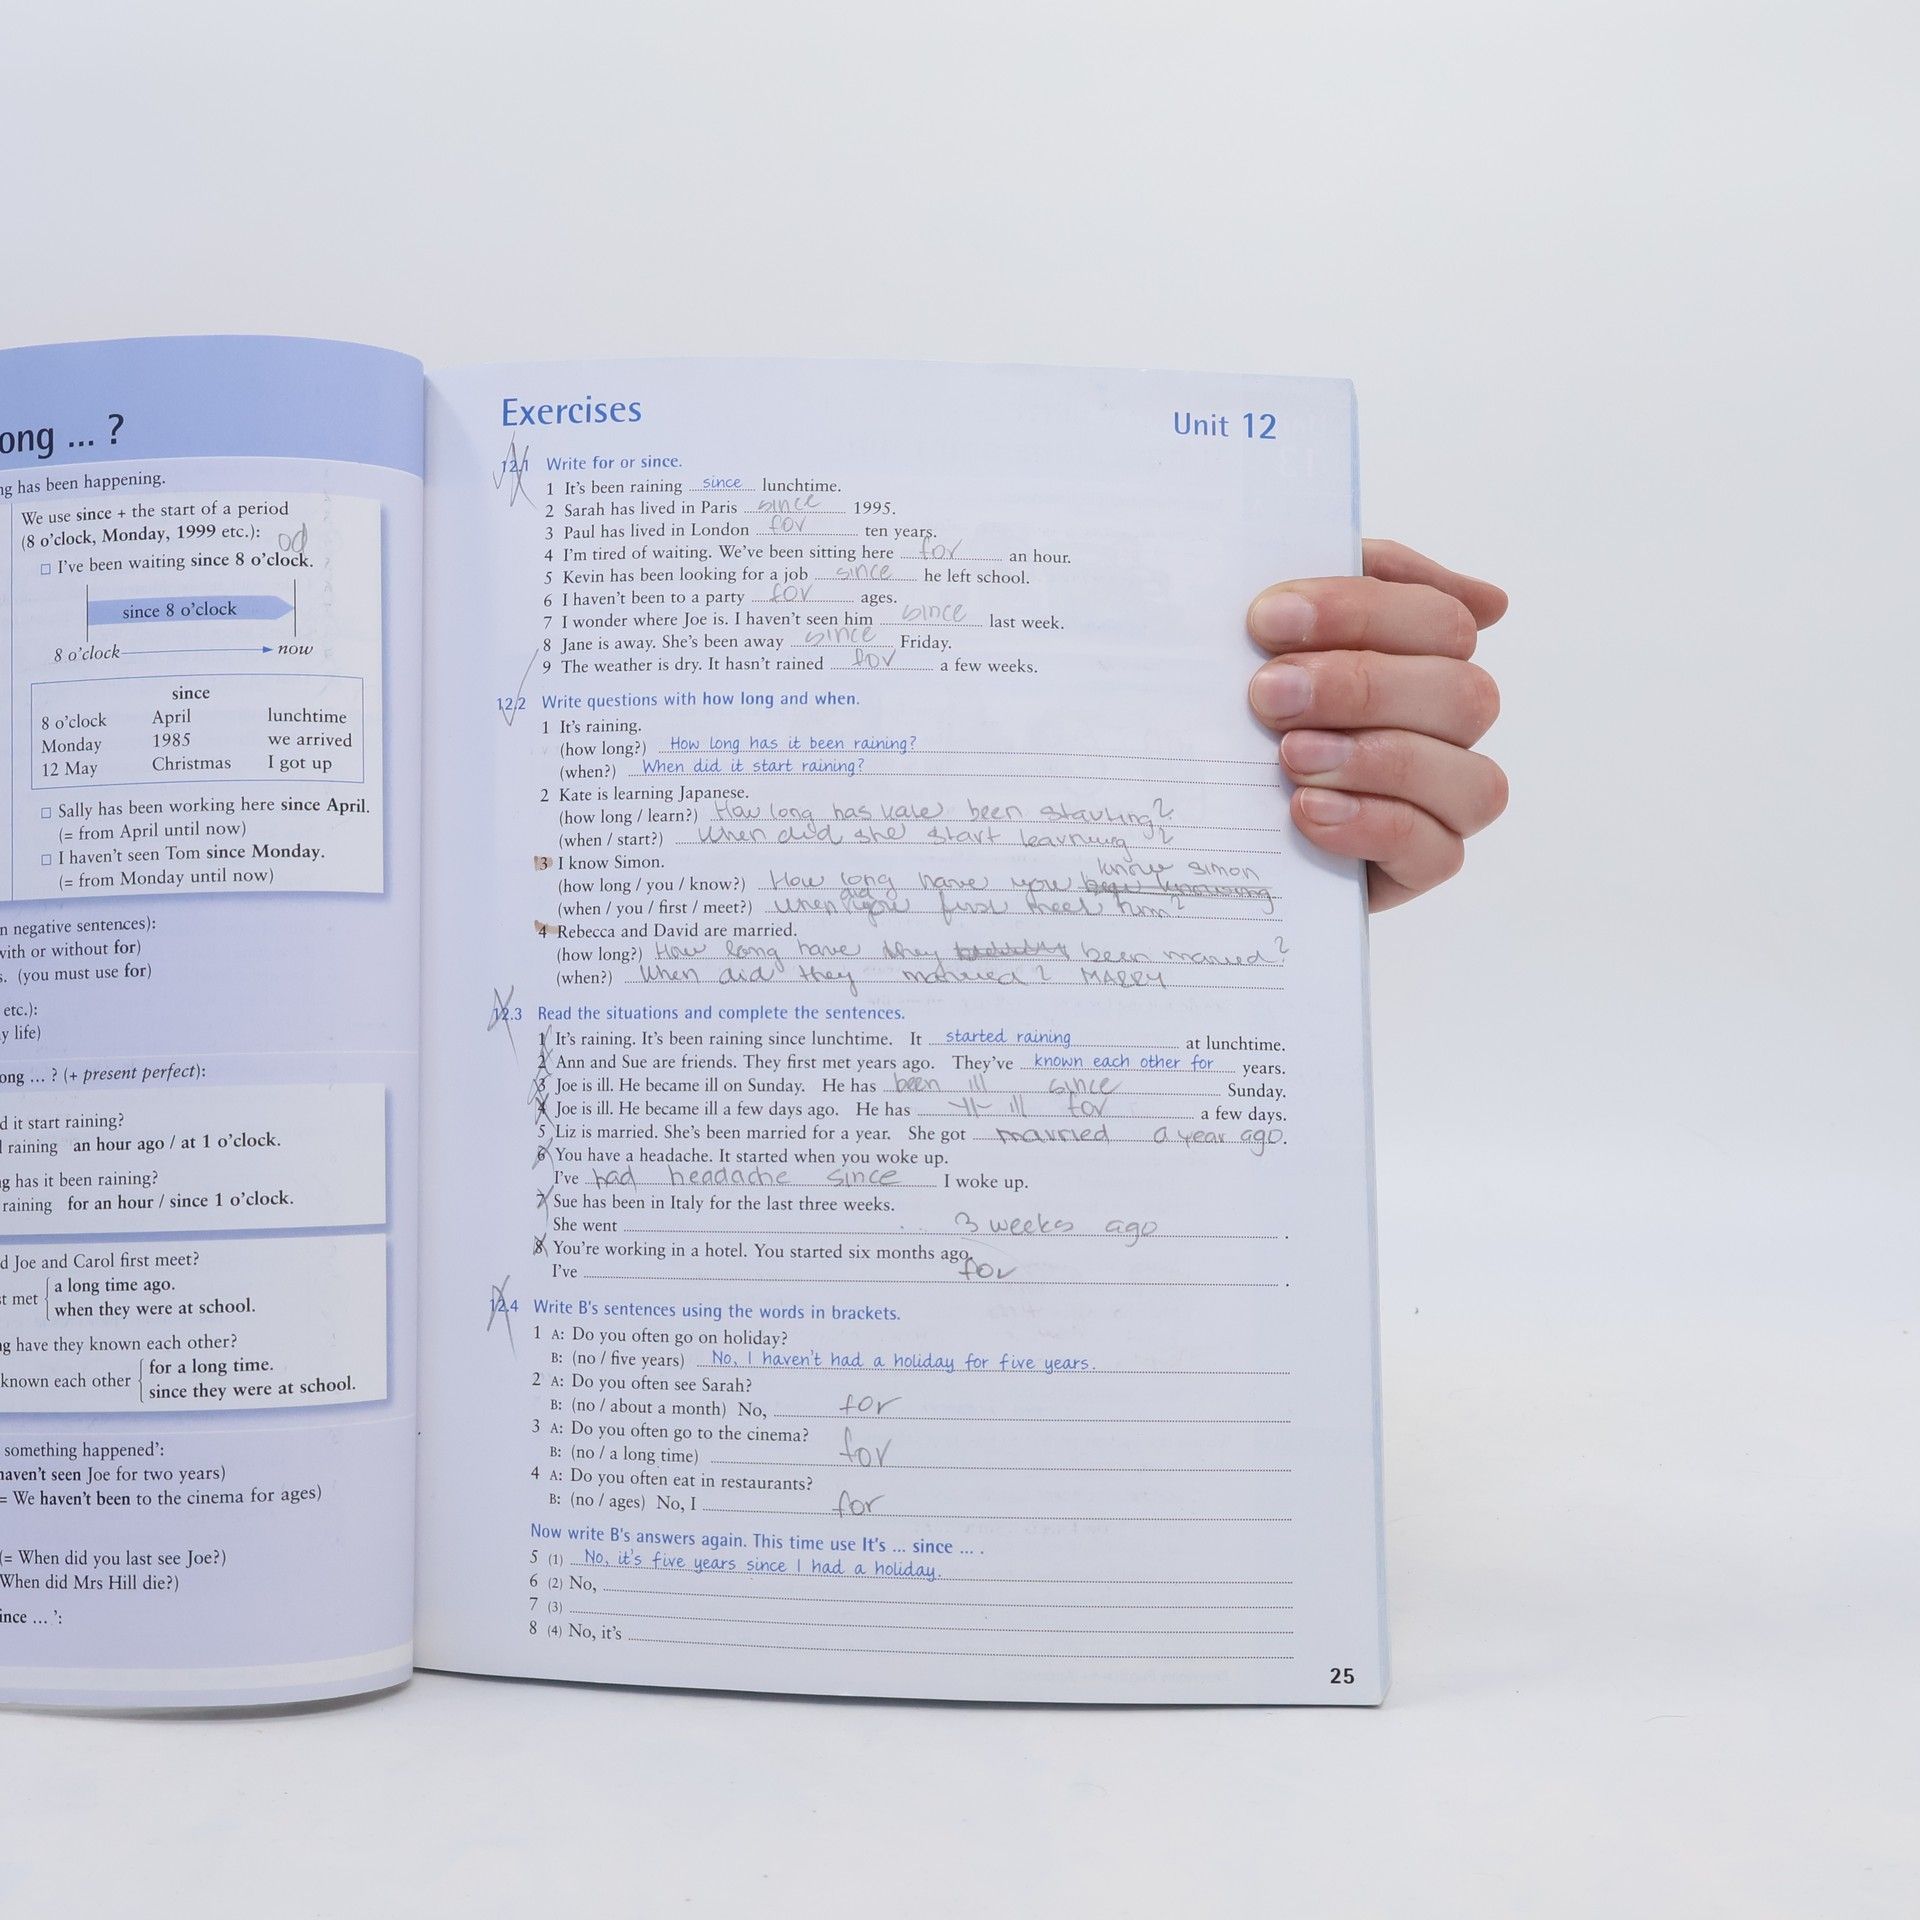 ong ... ?
ng has been happening.
We use since + the start of a period
(8 o'clock, Monday, 1999 etc.):
od
I've been waiting since 8 o'clock.
since 8 o'clock
8 o'clock now
since
8 o'clock April lunchtime
Monday 1985 we arrived
12 May Christmas I got up
Sally has been working here since April.
(= from April until now)
I haven't seen Tom since Monday.
(= from Monday until now)
n negative sentences):
with or without for)
s. (you must use for)
etc.):
y life)
ong ... ? (+ present perfect):
d it start raining?
raining an hour ago / at 1 o'clock.
g has it been raining?
raining for an hour / since 1 o'clock.
d Joe and Carol first meet?
t met a long time ago.
when they were at school.
g have they known each other?
known each other for a long time.
since they were at school.
something happened':
haven't seen Joe for two years)
= We haven't been to the cinema for ages)
(= When did you last see Joe?)
When did Mrs Hill die?)
ince ... ':
Exercises
Unit 12
12.1 Write for or since.
1 It's been raining since lunchtime.
2 Sarah has lived in Paris since 1995.
3 Paul has lived in London for ten years.
4 I'm tired of waiting. We've been sitting here for an hour.
5 Kevin has been looking for a job since he left school.
6 I haven't been to a party for ages.
7 I wonder where Joe is. I haven't seen him since last week.
8 Jane is away. She's been away since Friday.
9 The weather is dry. It hasn't rained for a few weeks.
12.2 Write questions with how long and when.
1 It's raining.
(how long?) How long has it been raining?
(when?) When did it start raining?
2 Kate is learning Japanese.
(how long / learn?) How long has kate been starting?
(when / start?) When did she start learning?
3 I know Simon.
know simon
(how long / you / know?) How long have you been knowing
(when / you / first / meet?) When did you first meet him?
4 Rebecca and David are married.
(how long?) How long have they been married?
(when?) When did they married? MARRY
12.3 Read the situations and complete the sentences.
1 It's raining. It's been raining since lunchtime. It started raining at lunchtime.
2 Ann and Sue are friends. They first met years ago. They've known each other for years.
3 Joe is ill. He became ill on Sunday. He has been ill since Sunday.
4 Joe is ill. He became ill a few days ago. He has ill for a few days.
5 Liz is married. She's been married for a year. She got married a year ago.
6 You have a headache. It started when you woke up.
I've had headache since I woke up.
7 Sue has been in Italy for the last three weeks.
She went 3 weeks ago.
8 You're working in a hotel. You started six months ago.
I've for.
12.4 Write B's sentences using the words in brackets.
1 A: Do you often go on holiday?
B: (no / five years) No, I haven't had a holiday for five years.
2 A: Do you often see Sarah?
B: (no / about a month) No, for
3 A: Do you often go to the cinema?
B: (no / a long time) for
4 A: Do you often eat in restaurants?
B: (no / ages) No, I for
Now write B's answers again. This time use It's ... since ... .
5 (1) No, it's five years since I had a holiday.
6 (2) No,
7 (3)
8 (4) No, it's
25